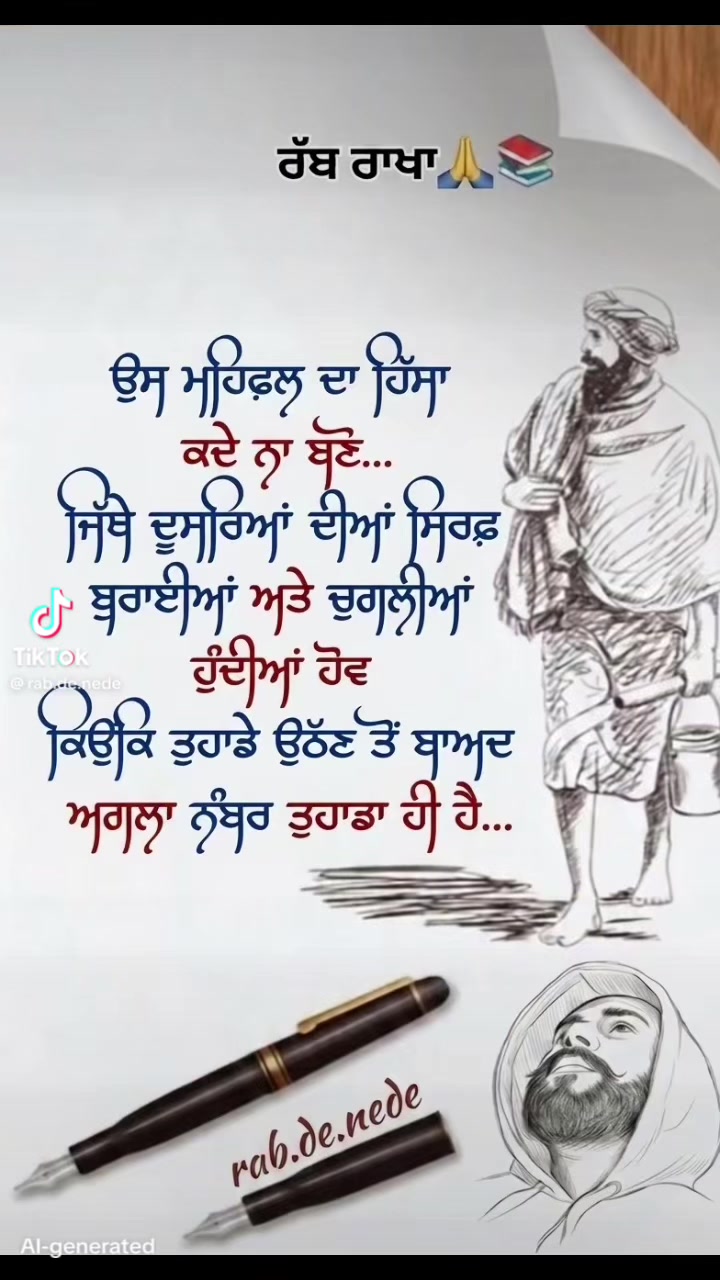 ਰੱਬ ਰਾਖਾ🙏📚
ਉਸ ਮਹਿਫ਼ਲ ਦਾ ਹਿੱਸਾ
ਕਦੇ ਨਾ ਬਣੋ...
ਜਿੱਥੇ ਦੂਸਰਿਆਂ ਦੀਆਂ ਸਿਰਫ਼
ਬੁਰਾਈਆਂ ਅਤੇ ਚੁਗਲੀਆਂ
ਹੁੰਦੀਆਂ ਹੋਵ
ਕਿਉਂਕਿ ਤੁਹਾਡੇ ਉਠੱਣ ਤੋਂ ਬਾਅਦ
ਅਗਲਾ ਨੰਬਰ ਤੁਹਾਡਾ ਹੀ ਹੈ...
TikTok
@rab.de.nede
rab.de.nede
AI-generated